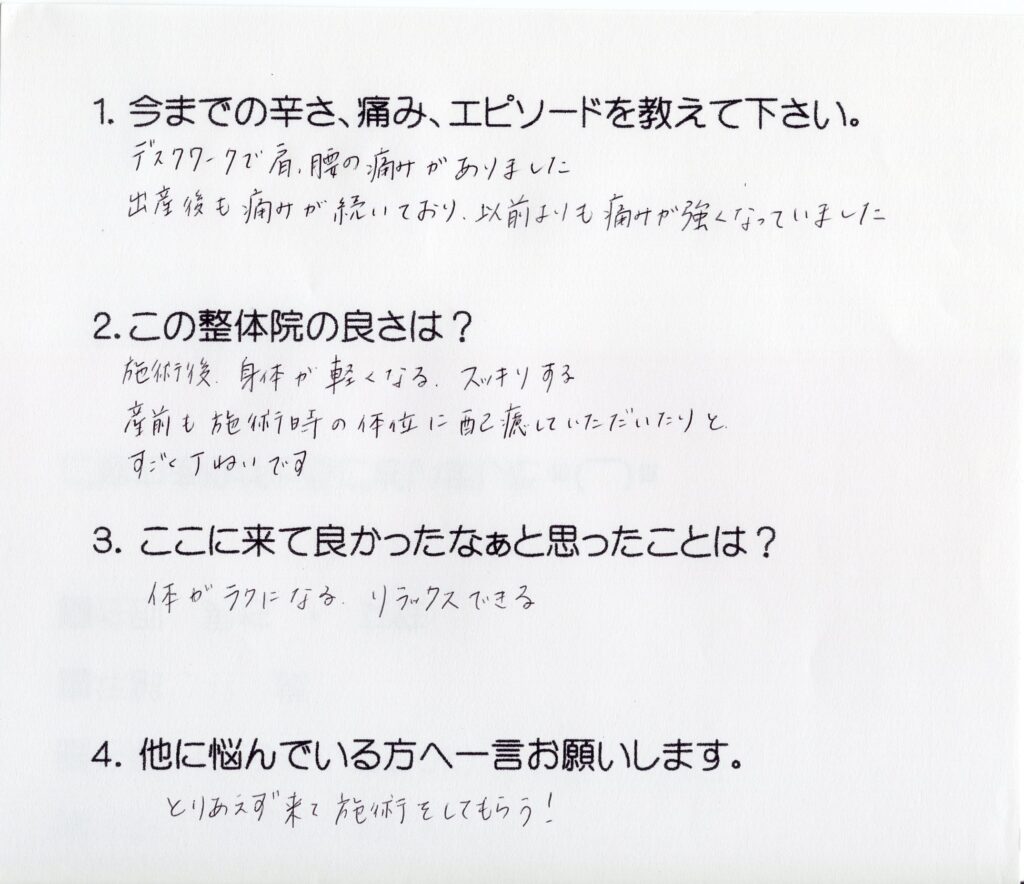 1. 今までの辛さ、痛み、エピソードを教えて下さい。
デスクワークで肩、腰の痛みがありました
出産後も痛みが続いており、以前よりも痛みが強くなっていました
2.この整体院の良さは？
施術後、身体が軽くなる、スッキリする
産前も施術時の体位に配慮していただいたりと、
すごく丁ねいです
3. ここに来て良かったなぁと思ったことは？
体がラクになる、リラックスできる
4. 他に悩んでいる方へ一言お願いします。
とりあえず来て施術をしてもらう！